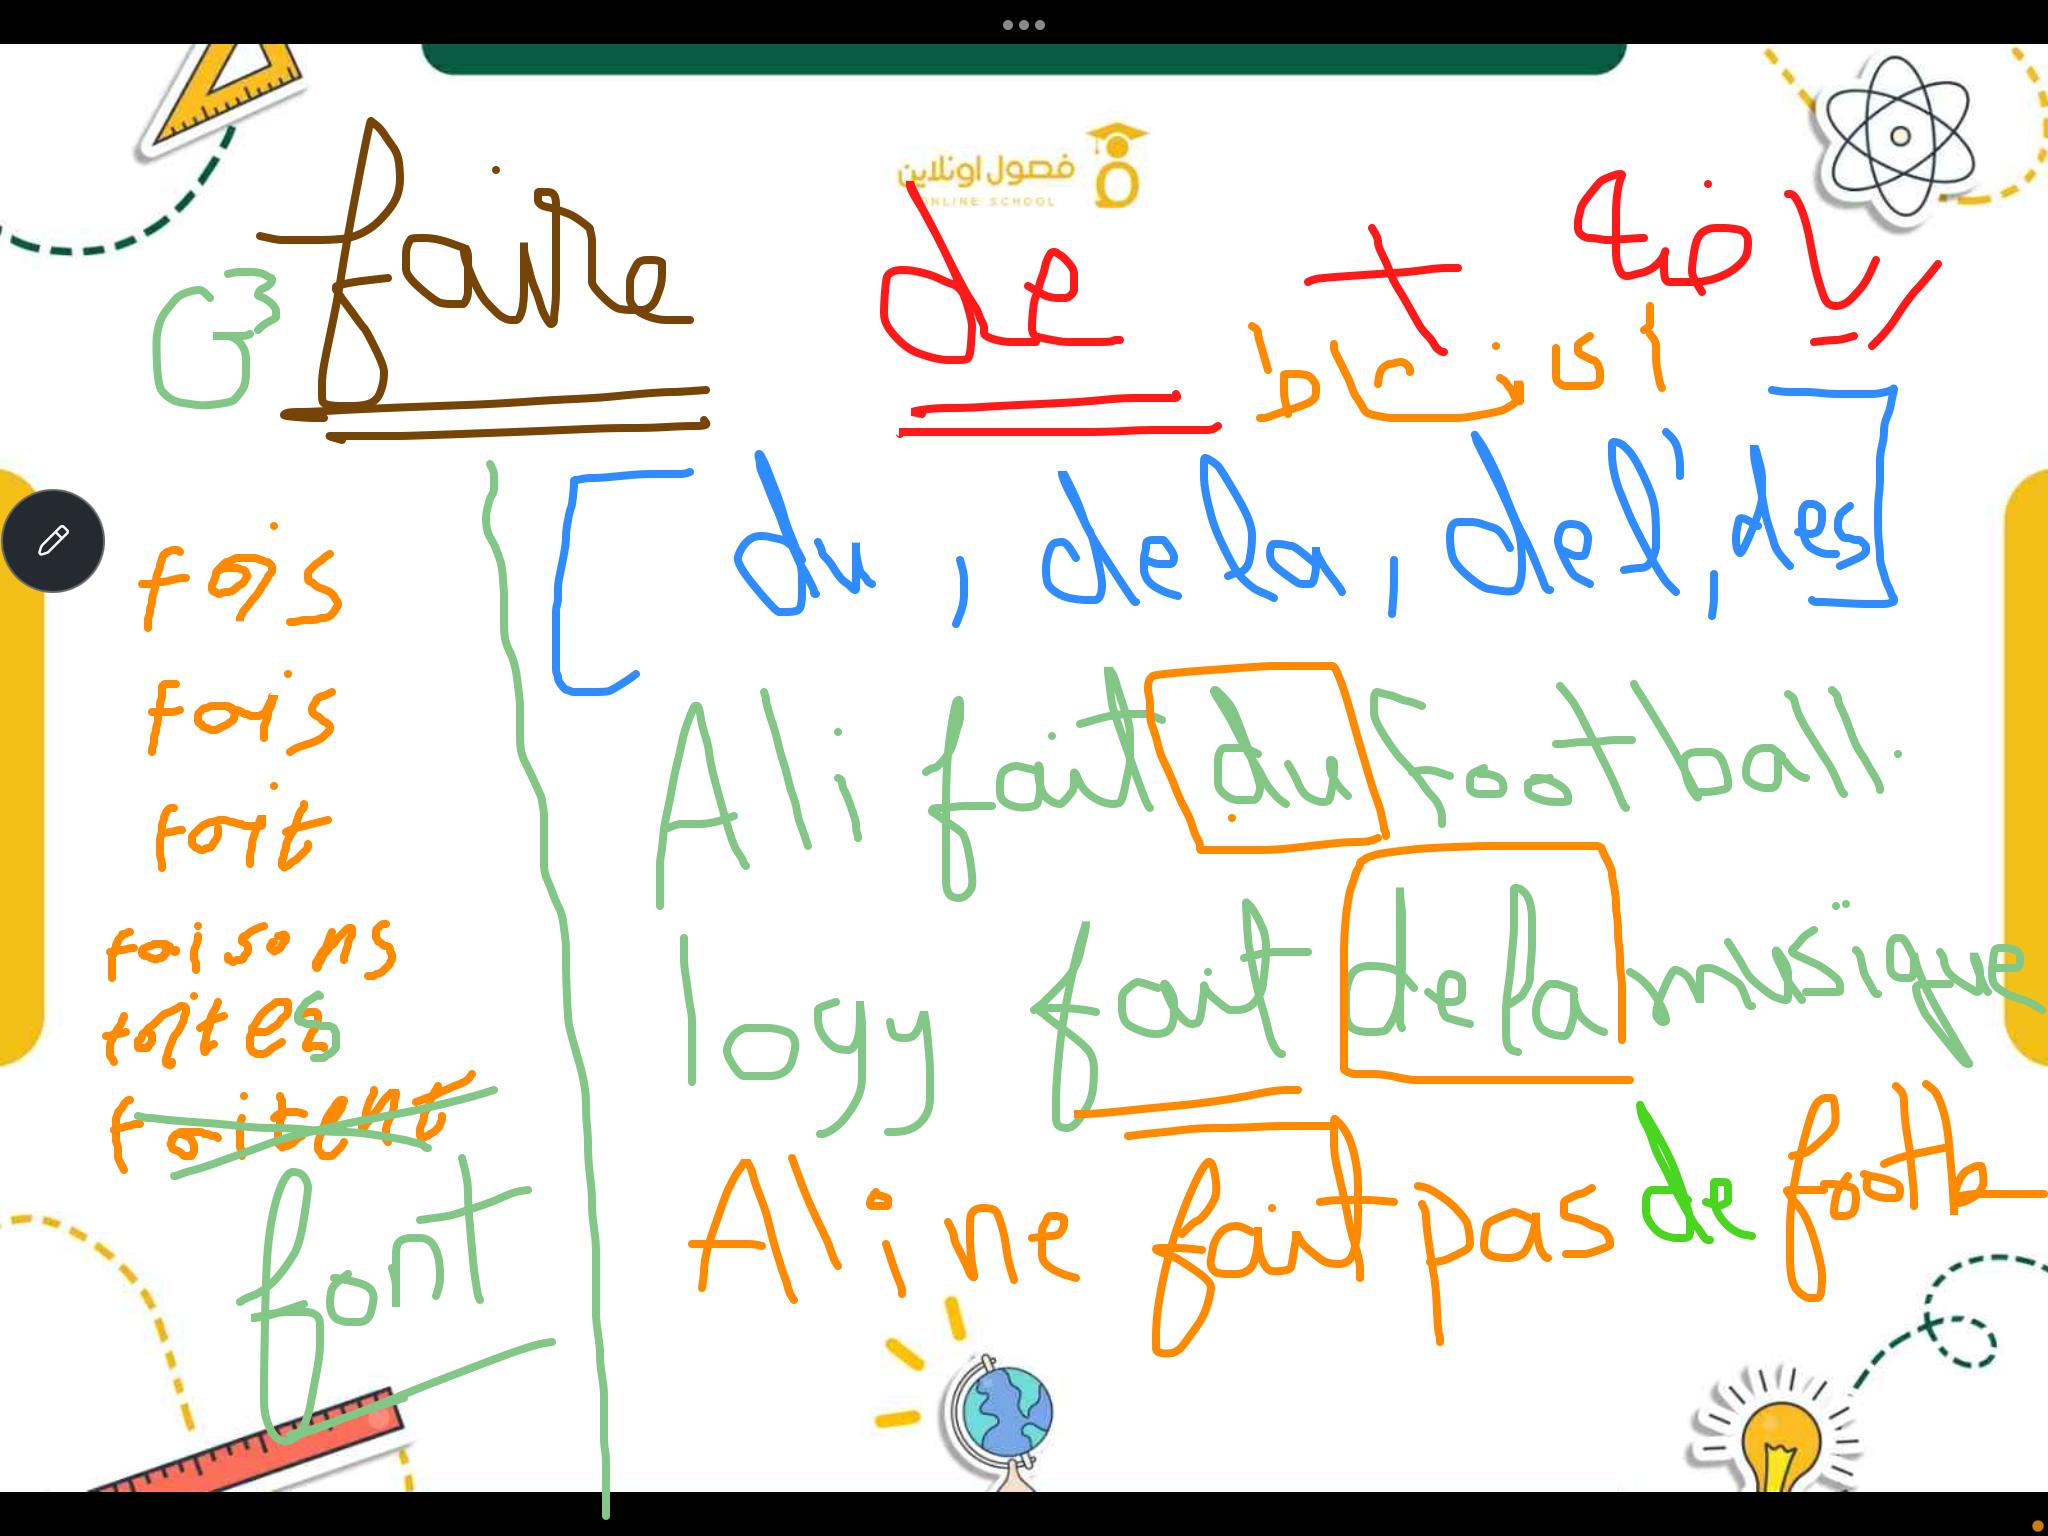 فصول اونلاين
ONLINE SCHOOL
G3 faire de +
[du, de la, de l', des]
fais
fais
fait
faisons
faites
faitent
font
Ali fait du Football.
logy fait de la musique
Ali ne fait pas de footb